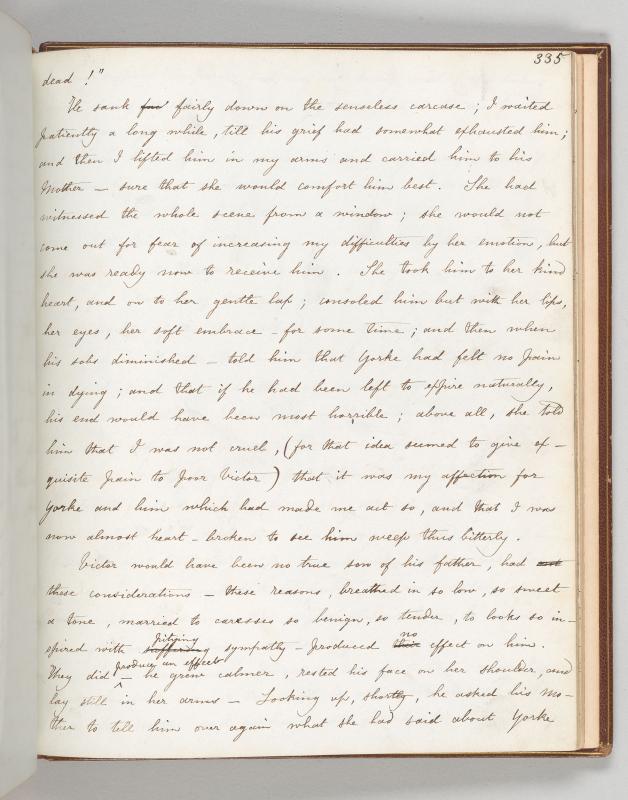 335
dead !"
He sank for fairly down on the senseless carcase ; I waited
patiently a long while , till his grief had somewhat exhausted him ;
and then I lifted him in my arms and carried him to his
Mother — sure that she would comfort him best . She had
witnessed the whole scene from a window ; she would not
come out for fear of increasing my difficulties by her emotion , but
she was ready now to receive him . She took him to her kind
heart , and on to her gentle lap ; consoled him but with her lips ,
her eyes , her soft embrace – for some time ; and then when
his sobs diminished – told him that Yorke had felt no pain
in dying ; and that if he had been left to expire naturally ,
his end would have been most horrible ; above all , she told
him that I was not cruel , (for that idea seemed to give ex –
quisite pain to poor Victor ) that it was my affection for
Yorke and him which had made me act so , and that I was
now almost heart – broken to see him weep thus bitterly .
Victor would have been no true son of his father , had
these considerations – these reasons , breathed in so low , so sweet
a tone , married to caresses so benign , so tender , to looks so in –
spired with pitying sympathy – produced no effect on him .
They did produce an effect – he grew calmer , rested his face on her shoulder , and
lay still in her arms – Looking up , shortly , he asked his Mo –
ther to tell him over again what she had said about Yorke